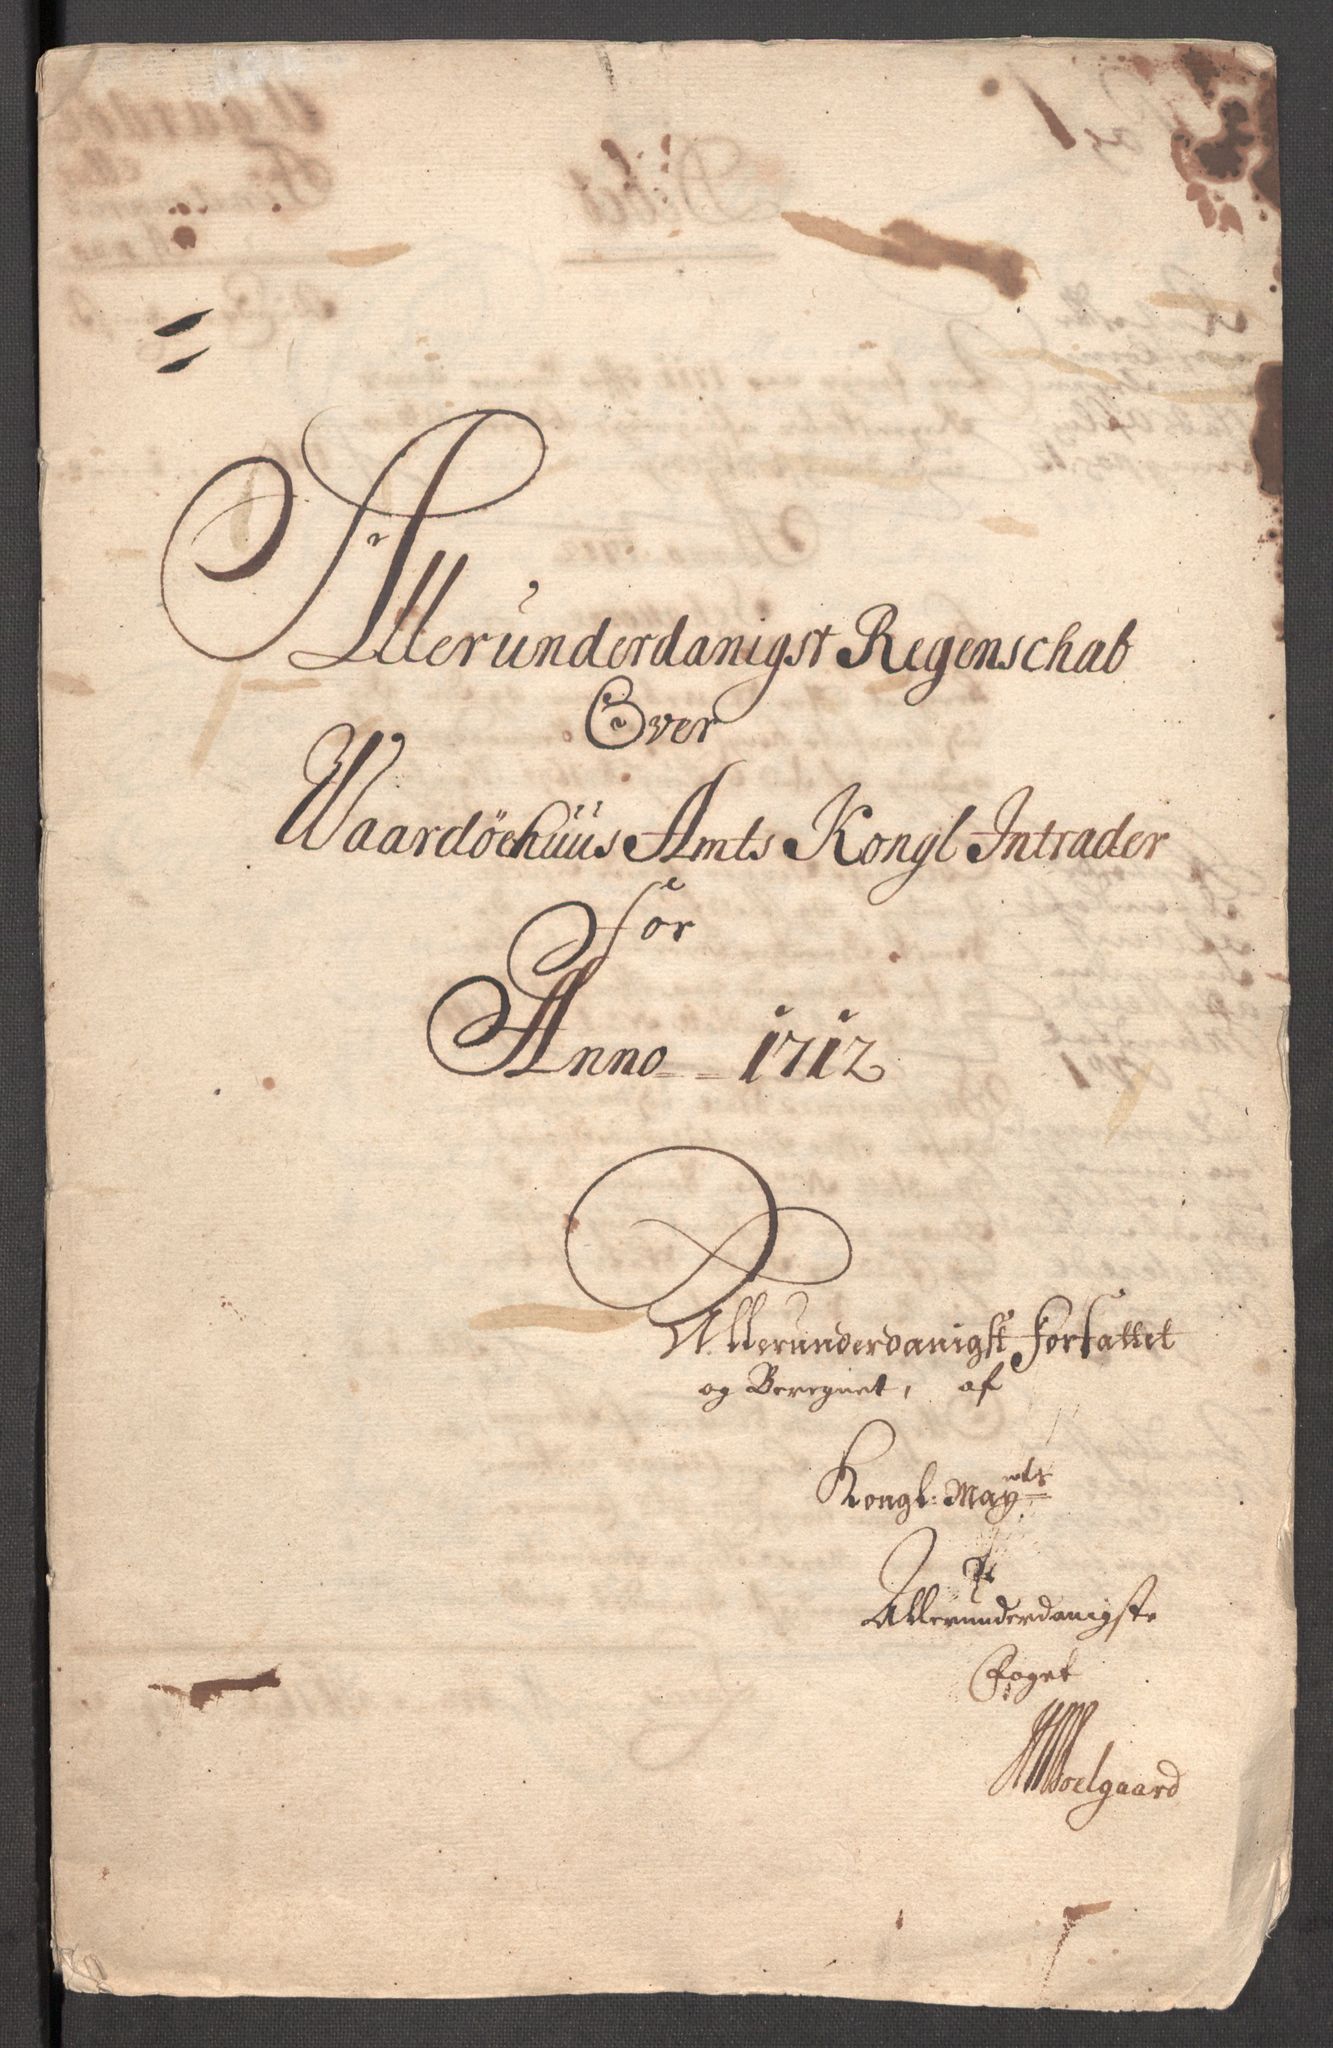 Allerunderdanigst Regenschab
Over
Waardöehuus Amts Kongl Intrader
for
Anno 1712
Allerunderdanigst forfattet
og Beregnet, af
Kongl: Mayts
Allerunderdanigste
Foget
Soelgaard